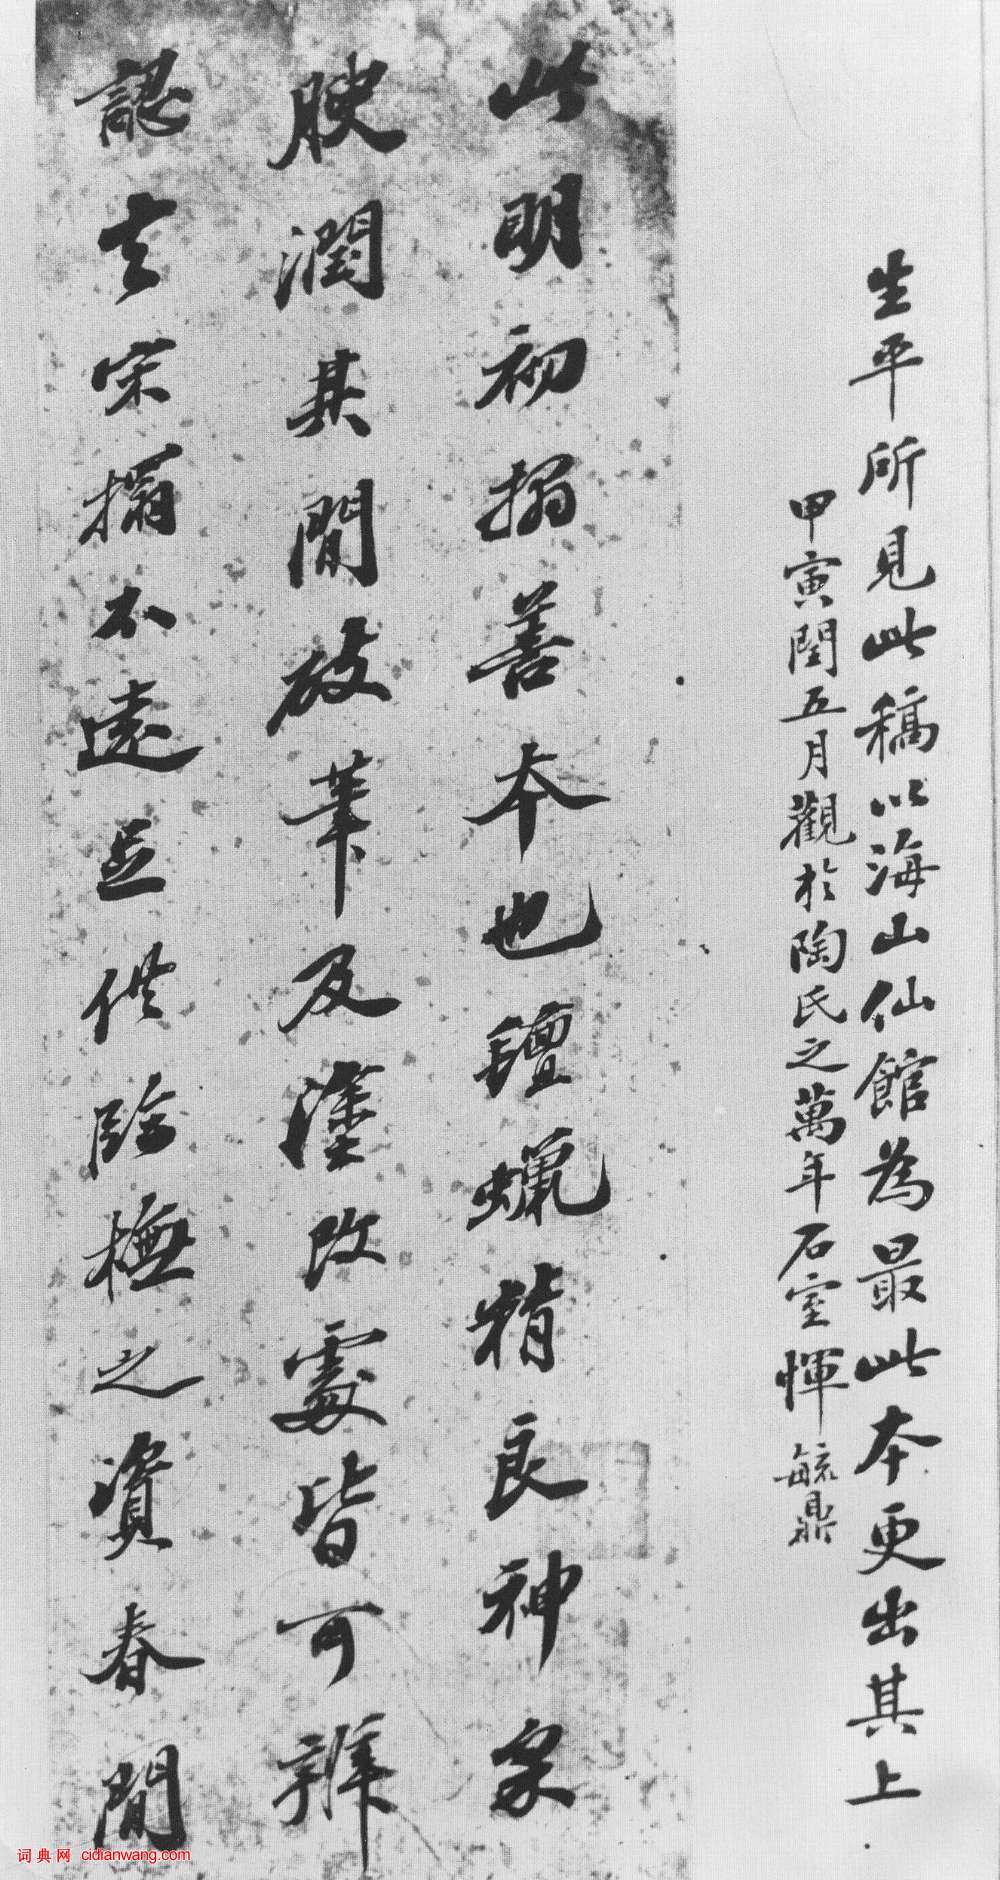 生平所見此稿以海山仙館為最此本更出其上
甲寅閏五月觀於陶氏之萬年石室惲毓鼎
此明初搨善本也氊蠟精良神采
腴潤其間破筆及塗改處皆可辨
認去宋搨不遠足供臨橅之資春閒
词典网 cidianwang.com